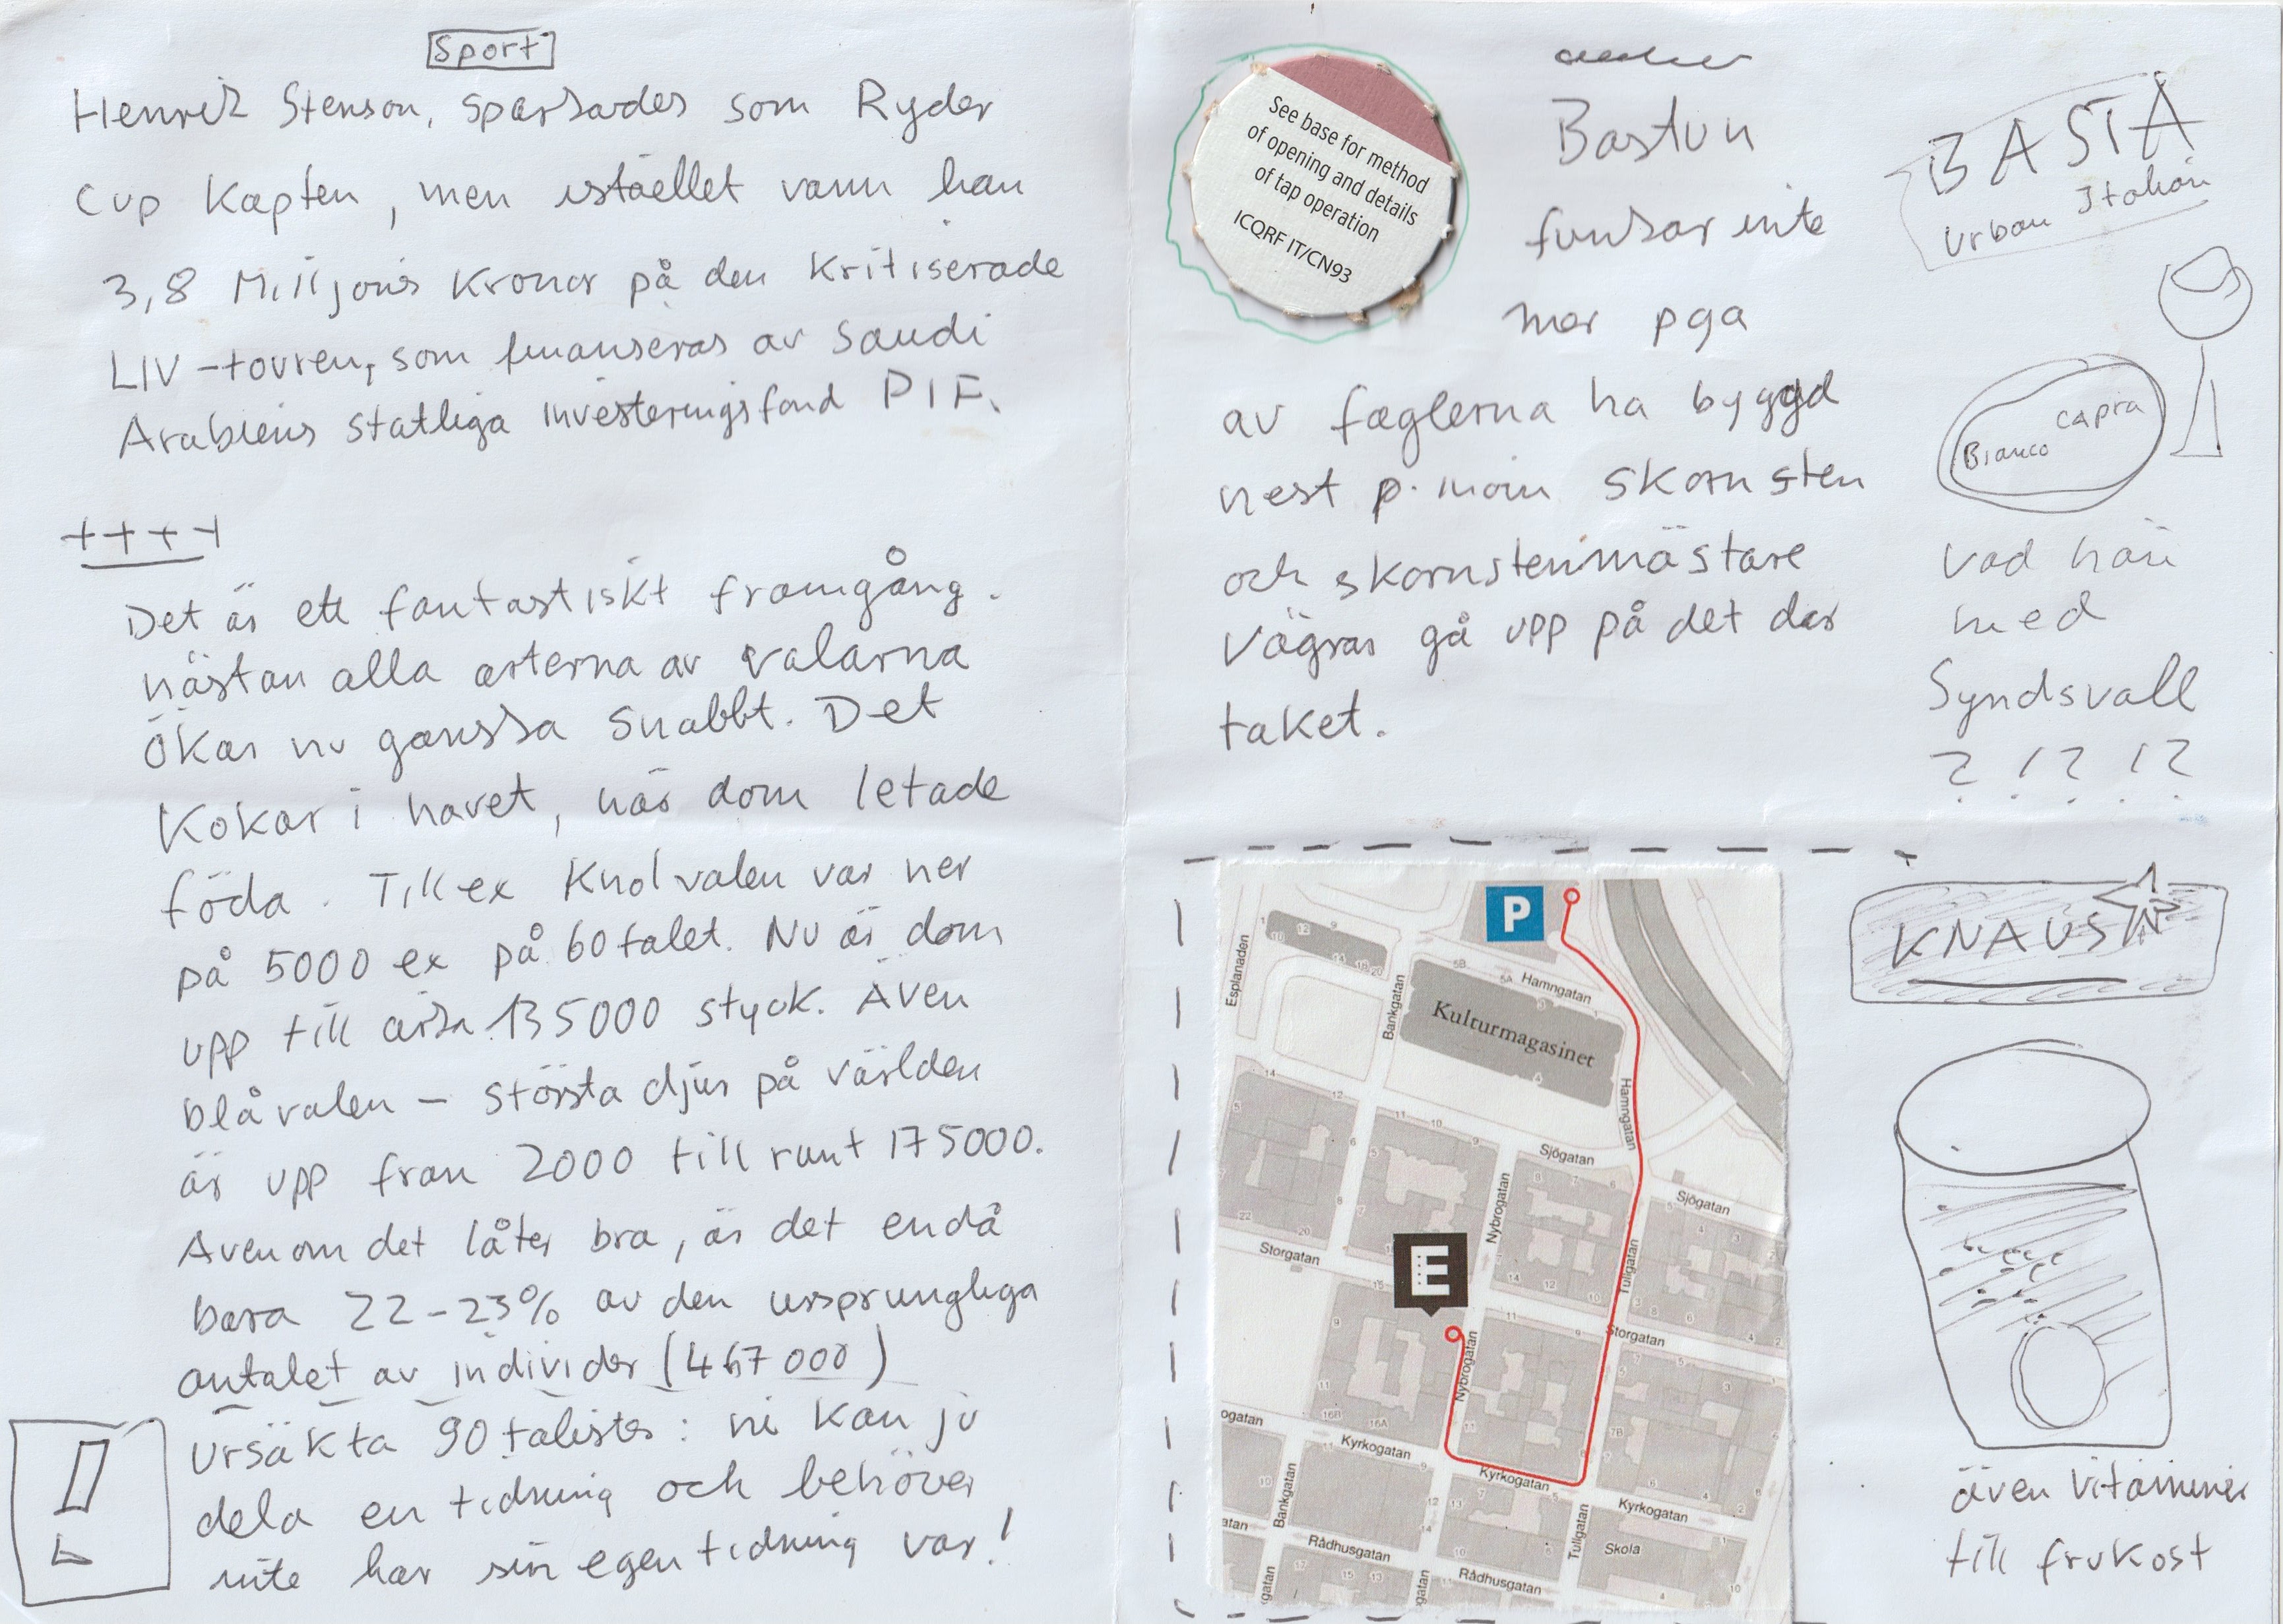 Sport
Henrik Stenson, sparkades som Ryder
Cup Kapten, men istäellet vann han
3,8 Milljoner Kronor på den Kritiserade
LIV-touren, som finanseras av Saudi
Arabiens Statliga investeringsfond PIF.
++++
Det är ett fantastiskt framgång.
nästan alla arterna av valarna
ökar nu ganska Snabbt. Det
Kokar i havet, när dom letade
föda. Till ex Knolvalen var ner
på 5000 ex på 60talet. Nu är dom
upp till cirka 135000 styck. Även
blåvalen – största djur på världen
är upp fran 2000 till runt 175000.
Även om det låter bra, är det endå
bara 22-23% av den ursprungliga
antalet av individer (467000)
Ursäkta 90talister: ni kan ju
dela en tidning och behöver
inte har sin egen tidning var!
See base for method
of opening and details
of tap operation
ICQRF IT/CN93
Bastun
funkar inte
mer pga
av fæglerna ha byggd
nest p. min skornsten
och skornstenmästare
vägrar gå upp på det der
taket.
BASTA
Urban Italian
Bianco Capra
Vad här
med
Syndsvall
? !? !?
KNAUS
även Vitaminer
till frukost
P
Esplanaden
Bankgatan
Hamngatan
Kulturmagasinet
Hamngatan
Sjögatan
Sjögatan
Nybrogatan
Storgatan
Tullgatan
E
Storgatan
Nybrogatan
ogatan
Kyrkogatan
Kyrkogatan
Kyrkogatan
Bankgatan
Tullgatan
atan
Rådhusgatan
Skola
Rådhusgatan
gatan
gatan